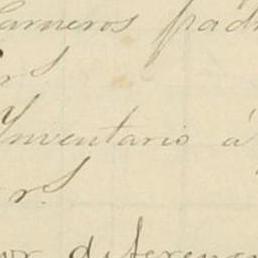 Carneros padr
rs
Inventario á
r.s
por diferenc